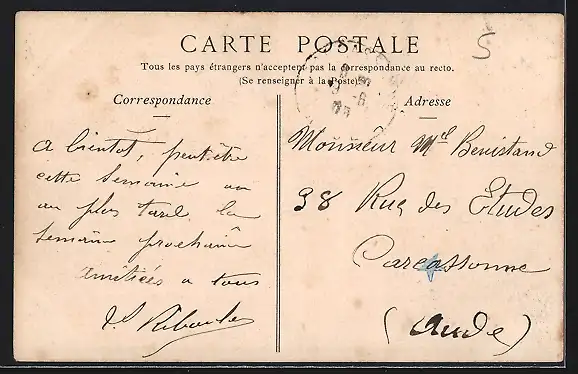 CARTE POSTALE
Tous les pays étrangers n'acceptent pas la correspondance au recto.
(Se renseigner à la Poste).
Correspondance
Adresse
5
a bientot, peut-être
cette semaine ou
au plus tard la
semaine prochaine
Amitiés a tous
Monsieur Mel Benistand
38 Rue des Etudes
Carcassonne
(Aude)